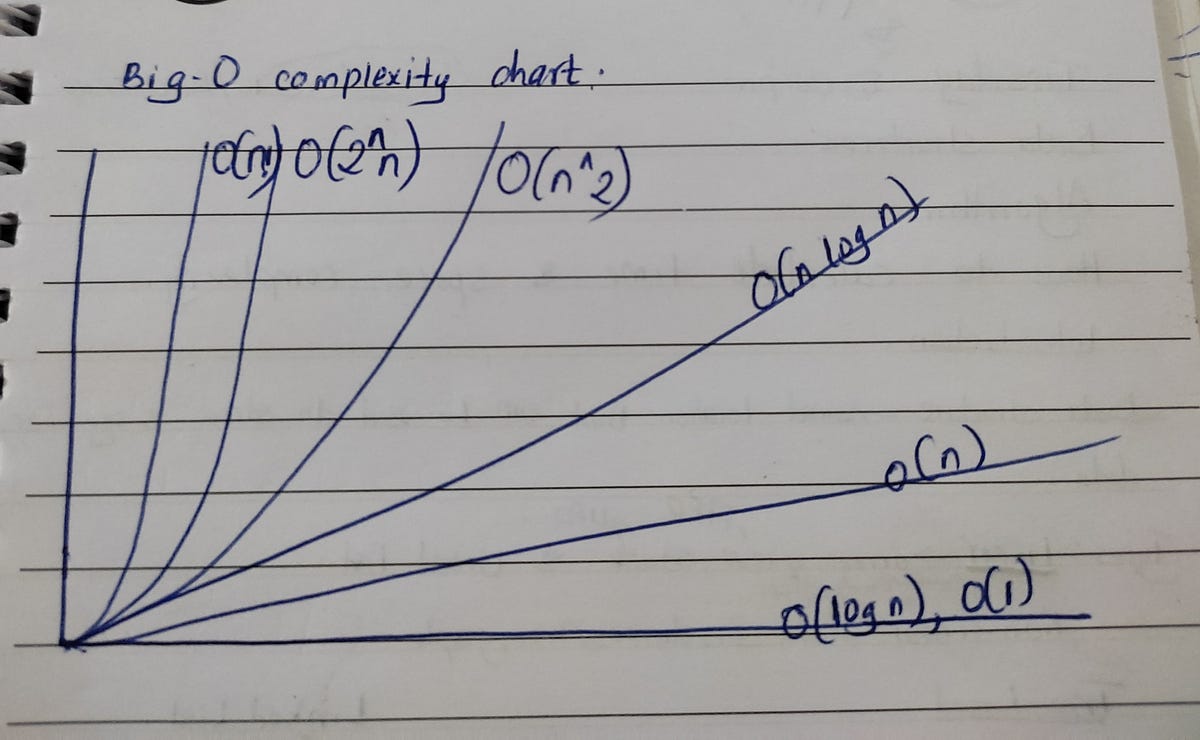 Big-O complexity chart.
O(n!) O(2^n) O(n^2)
O(n log n)
O(n)
O(log n), O(1)